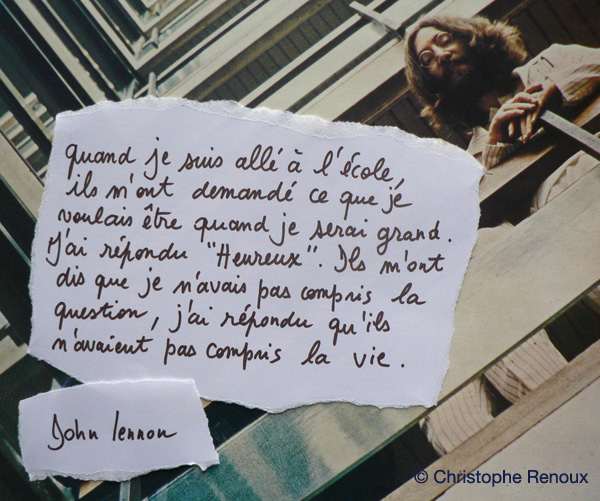 quand je suis allé à l'école,
ils m'ont demandé ce que je
voulais être quand je serai grand.
J'ai répondu "Heureux". Ils m'ont
dis que je n'avais pas compris la
question, j'ai répondu qu'ils
n'avaient pas compris la vie.
John lennon
© Christophe Renoux